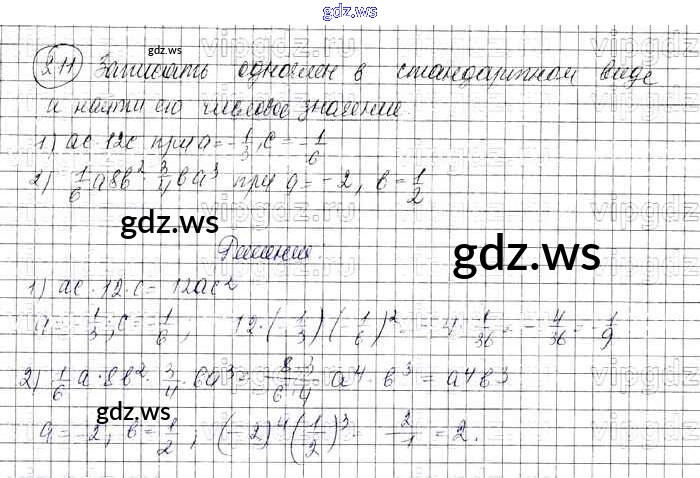 gdz.ws
211 Записать одночлен в стандартном виде
gdz.ws
и найти его числовое значение.
1) ac · 12c при a = -1/3, c = -1/6
2) 1/6 a8b² · 3/4 ba³ при a = -2, b = 1/2
gdz.ws
gdz.ws
Решения
1) ac · 12 · c = 12ac²
a = -1/3; c = -1/6; 12 · (-1/3)(-1/6)² = -4 · 1/36 = -4/36 = -1/9
2) 1/6 a · 8b² · 3/4 · ba³ = 8·3/6·4 · a⁴ · b³ = a⁴b³
gdz.ws
a = -2, b = 1/2, (-2)⁴(1/2)³ = 2/1 = 2.
gdz.ws